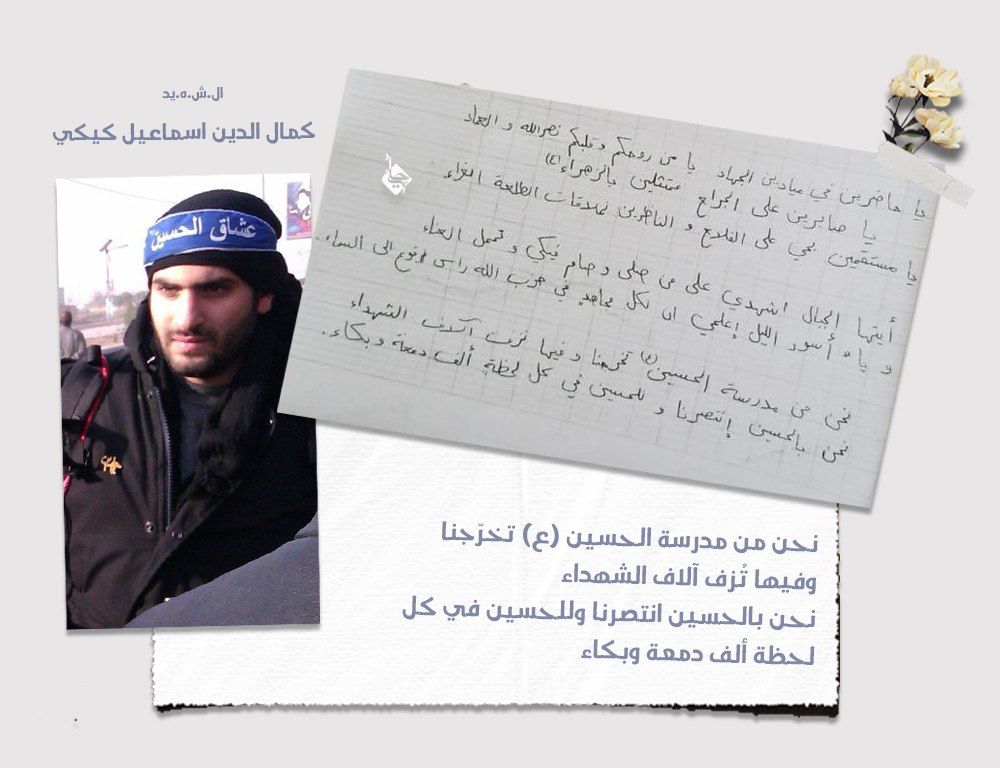 ال.ش.ه.يد
كمال الدين اسماعيل كيكي
عشاق الحسين
يا حاضرين في ميادين الجهاد يا من روحكم وقلبكم نصرالله و العماد
يا صابرين على الجراح متمثلين بالزهراء (ع)
يا مستقمين بحي على الفلاح و الناظرين بحدقات الطلعة الغراء
أيتها الجبال اشهدي على من صلى و صام فيكي و تحمل العناء
و يا أسود الليل إعلمي ان لكل مجاهد في حزب الله راس مرفوع الى السماء
نحن من مدرسة الحسين (ع) تخرجنا و فيها تزف آلاف الشهداء
نحن بالحسين إنتصرنا و للحسين في كل لحظة ألف دمعة و بكاء.
نحن من مدرسة الحسين (ع) تخرّجنا
وفيها تُزف آلاف الشهداء
نحن بالحسين انتصرنا وللحسين في كل
لحظة ألف دمعة وبكاء